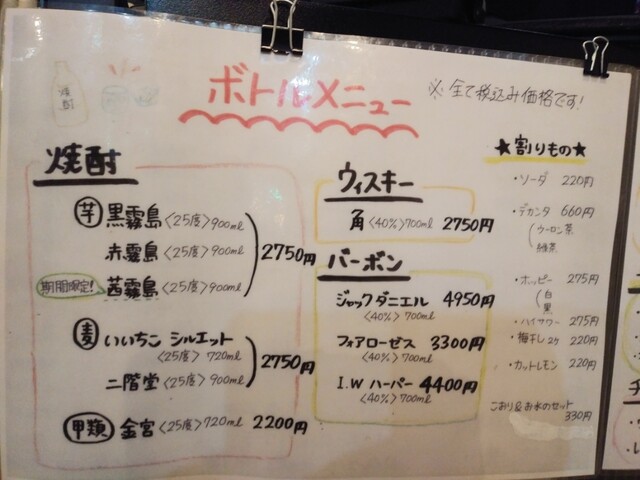 焼酎
ボトルメニュー
※全て税込み価格です!
焼酎
芋 黒霧島〈25度〉900ml
赤霧島〈25度〉900ml 2750円
期間限定! 茜霧島〈25度〉900ml
麦 いいちこ シルエット
〈25度〉720ml 2750円
二階堂〈25度〉900ml
甲類 金宮〈25度〉720ml 2200円
ウィスキー
角〈40%〉700ml 2750円
バーボン
ジャックダニエル 4950円
〈40%〉700ml
フォアローゼス 3300円
〈40%〉700ml
I.W ハーパー 4400円
〈40%〉700ml
★割りもの★
・ソーダ 220円
・デカンタ 660円
ウーロン茶
緑茶
・ホッピー 275円
白
黒
・ハイサワー 275円
・梅干し2ケ 220円
・カットレモン 220円
こおり&お水のセット
330円